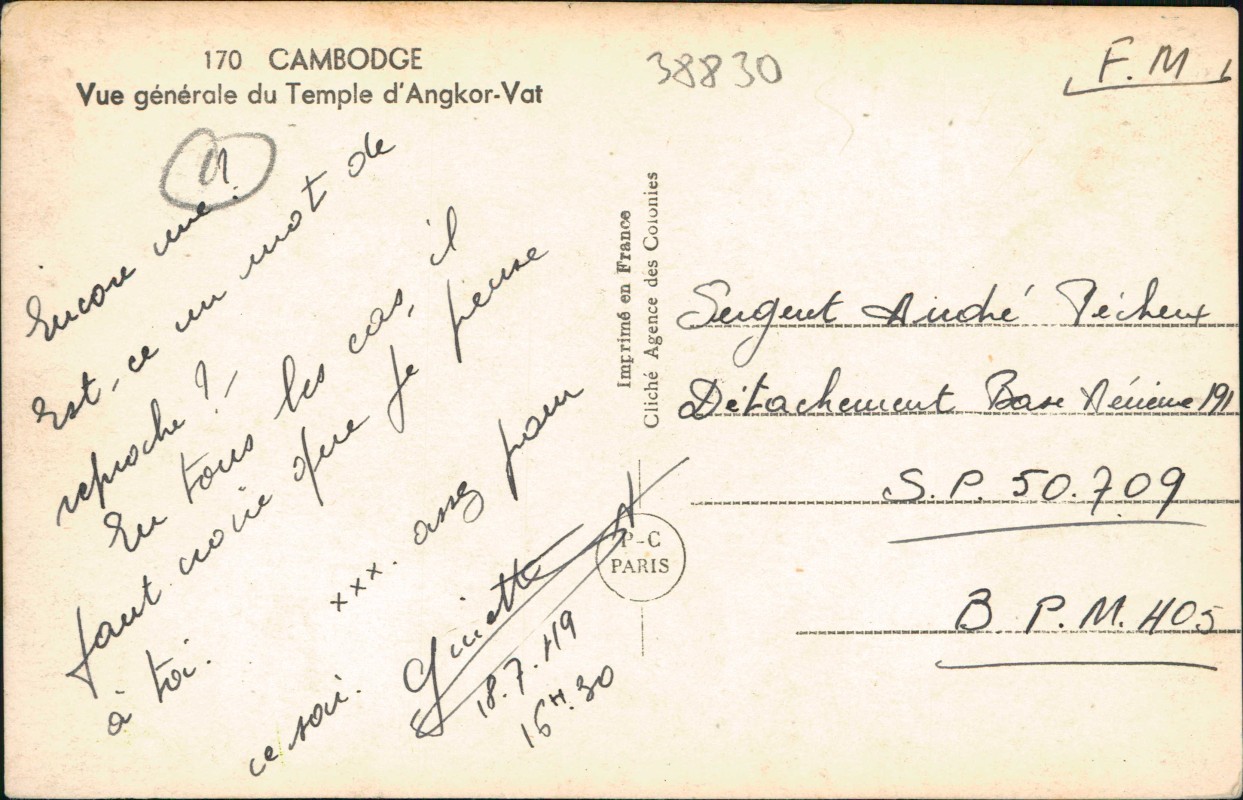 170 CAMBODGE
Vue générale du Temple d'Angkor-Vat
38830
F.M
Encore une!
Est-ce un mot de
reproche?
En tous les cas, il
faut croire que je pense
à toi.
xxx. assez pour
ce soir.
Ginette
18.7.49
16H.30
Imprimé en France
Cliché Agence des Colonies
P-C
PARIS
Sergent André Pécheux
Détachement Base Aérienne 191
S.P. 50.709
B.P.M. 405